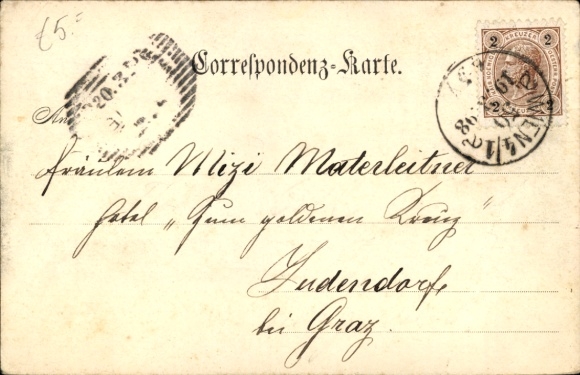 £5.-
Correspondenz-Karte.
2 KREUZER 2
2 2
20.3
WIEN 4/1
An
Fräulein Mizi Materleitner
Hotel „Zum goldenen Kreuz"
Judendorf
bei Graz.